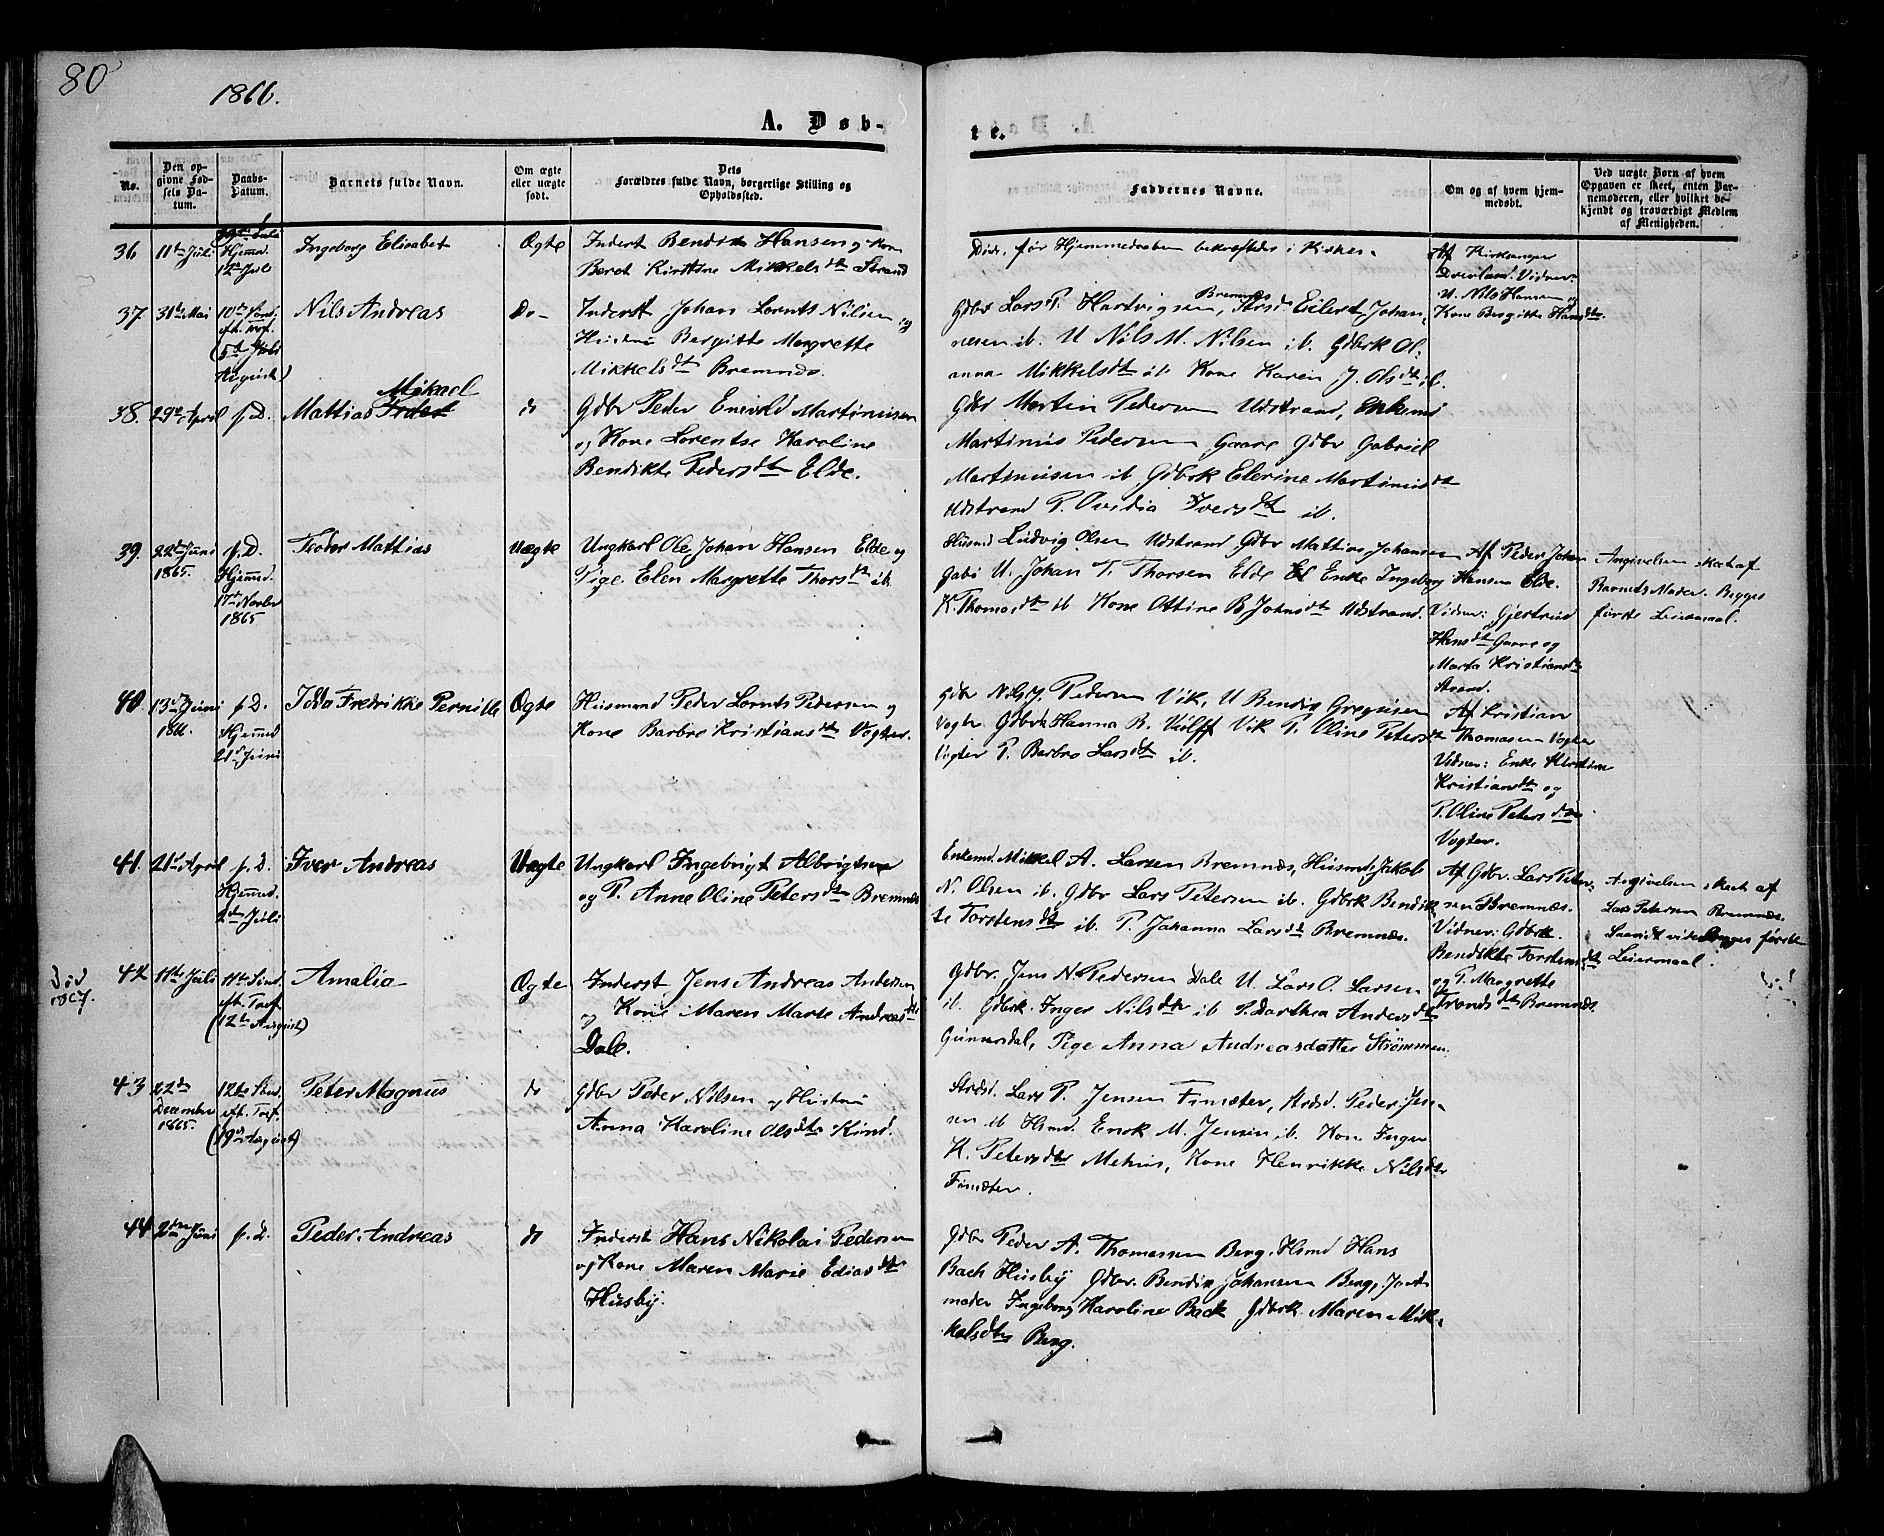 80
1866.
A. Døb-
te.
No.
Den op-
givne Fød-
sels Da-
tum.
Daabs-
Datum.
Barnets fulde Navn.
Om ægte
eller uægte
født.
Dets
Forældres fulde Navn, borgerlige Stilling og
Opholdssted.
Faddernes Navne.
Om og af hvem hjem-
medøbt.
Ved uægte Born af hvem
Opgaven er skeet, enten Bar-
nemoderen, eller hvilket be-
kjendt og troværdigt Medlem
af Menigheden.
36
11te Juli
Hjemmed.
12te Juli
Ingeborg Elisabet
Ægte
Inderst Bendix Hansen og Kone
Beret Kirstine Mikkelsdtr Strand
Døde, før Hjemmedaaben bekræftedes i Kirken.
Af Kirkesanger
Vidner:
U. Nils Hansen og
Kone Birgitte Hansdtr.
37
31te Mai
10de Sønd.
eft. Tref.
(5te
August)
Nils Andreas
Do
Inderst Johan Lornts Nilsen og
Hustru Bergitte Margrette
Mikkelsdtr Bremnæs.
Gdbr Lars P. Hartvigsen Bremnæs, Strsd Eilert Johan-
nesen ib. U Nils M. Nilsen ib. Gdbrk Ol-
anna Mikkelsdtr ib. Kone Karen J. Olsdtr ib.
38.
29de April
s. D.
Mikael
Mattias Peder
do
Gdbr Peder Enevold Martinusen
og Kone Lorentse Karoline
Bendikte Pedersdtr Elde.
Gdbr Martin Pedersen Udstrand, Enkemd
Martinus Pedersen Gaare Gdbr Gabriel
Martinusen ib Gdbrk Elerine Martinusdtr
Udstrand P. Ovidia Iversdtr ib.
39.
22de Juni
1865.
s. D.
Hjemmed.
17de Novbr
1865
Peder Mattias
Uægte
Ungkarl Ole Johan Hansen Elde og
Pige Elen Margrette Thorsdtr ib.
Husmd Ludvig Olsen Udstrand Gdbr Mattias Johansen
U. Johan T. Thorsen Elde Enke Ingeborg
K. Thomasdtr ib Kone Ottine B. Johnsdtr Udstrand.
Af Peder Johan
Hansen Elde.
Vidner: Gjertrud
Hansdtr Gaare og
Marta Kristiansdtr
Strand.
Angivelsen skeet af
Barnets Moder. Begges
første Leiermaal.
40.
13de Juni
1866.
s. D.
Hjemmed
21de Juni
Ida Fredrikke Pernille
Ægte
Husmand Peder Lornts Pedersen og
Kone Barbro Kristiansdtr Vogter.
Gdbr Nils J. Pedersen Vik, U Bendix Gregusen
Vogter Gdbrk Hanna B. Wulff Vik P. Oline Petersdtr
Vogter P. Barbro Larsdtr ib.
Af Kristian
Thomasen Vogter
Vidner: Enke Kirstine
Kristiansdtr og
P. Oline Petersdtr
Vogter.
41.
21de April
s. D.
Hjemmed.
2den Juli
Iver Andreas
Uægte
Ungkarl Ingebrigt Albrigtsen
og P. Anne Oline Petersdtr Bremnæs
Enkemd. Mikkel A. Larsen Bremnæs, Husmd Jakob
N. Olsen ib. Gdbr Lars Petersen ib. Gdbrk Bendik-
te Torstensdtr ib. P. Johanna Larsdtr Bremnæs.
Af Gdbr. Lars Peter-
sen Bremnæs.
Vidner: Gdbrk.
Bendikte Torstensdtr
og P. Margrette
Trondsdtr Bremnæs.
Angivelsen skeet af
Lars Petersen Bremnæs.
Saavidt vides begges første
Leiermaal.
Død
1867.
42
11te Juli
11te Sønd.
eft. Tref.
(12te August)
Amalia
Ægte
Inderst Jens Andreas Andersen
og Kone Maren Marte Andreasdtr
Dale.
Gdbr. Jens N. Pedersen Dale U. Lars O. Larsen
ib. Gdbrk. Inger Nilsdtr ib P. Darthea Andersdtr
Gunnarsdal, Pige Anna Andreasdatter Strømmen.
43
22de
December
1865.
12te Sønd.
eft. Tref.
(19de August)
Peter Magnus
do
Gdbr Peder Nilsen og Hustru
Anna Karoline Olsdtr Kind.
Strdsd. Lars P. Jensen Finsæter, Strdsd. Peder Jen-
sen ib Hsmd. Enok M. Jensen ib. Kone Inger
H. Petersdtr Melnes, Kone Henrikke Nilsdtr
Finsæter.
44.
2den Juni
s. D.
Peder Andreas
do
Inderst Hans Nikolai Pedersen
og Kone Maren Marie Ediasdtr
Husby.
Gdbr Peder A. Thomassen Berg. Hsmd Hans
Bach Husby Gdbr. Bendix Johansen Berg, Jord-
moder Ingeborg Karoline Bach Gdbrk. Maren Mik-
kelsdtr Berg.